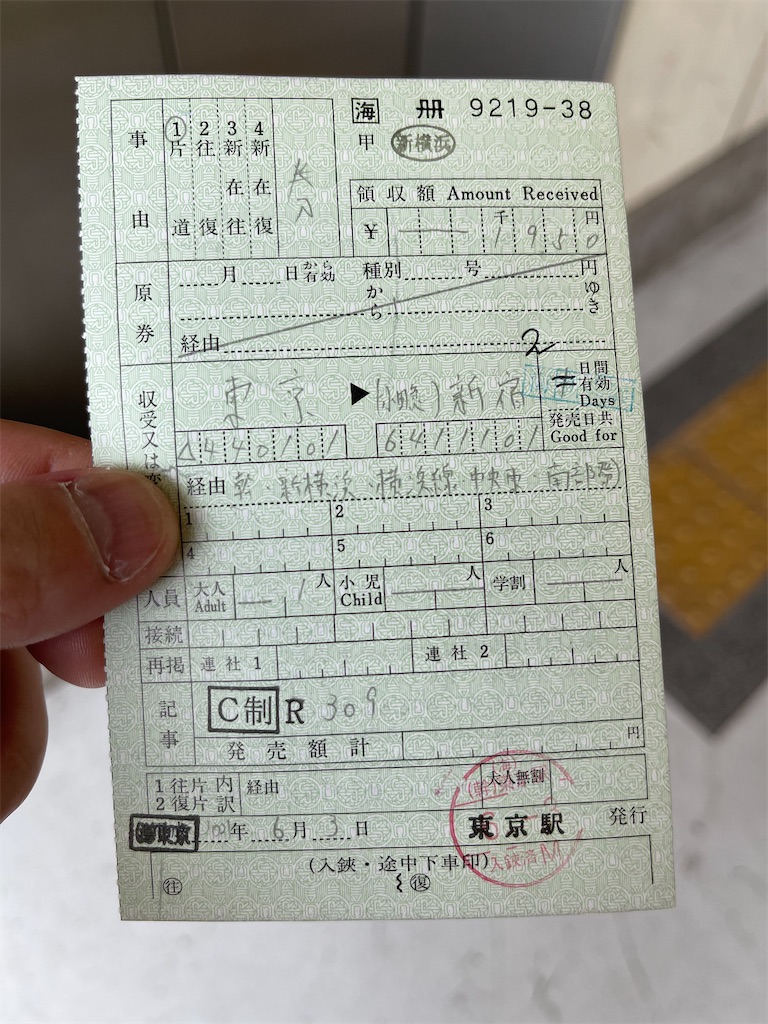 海 冊 9219-38
甲 新横浜
事由
1片道 2往復 3新在往 4新在復
領収額 Amount Received
¥ 千 円
1950
原券
月 日から有効 種別 号 円
から ゆき
経由
収受又は変
東京 ▶ 新宿
2
日間有効 Days
発売日共 Good for
4440101 6411101
経由 幹・新横浜・横浜線 中央東・南部
1 2 3
4 5 6
人員 大人 Adult 1人 小児 Child 人 学割 人
接続
再掲 連社1 連社2
記事
C制 R 309
発売額計 円
1往片内 2復片訳 経由 大人無割
東京 年 6月3日 東京駅 発行
入鋏済 M
(入鋏・途中下車印)
往 復